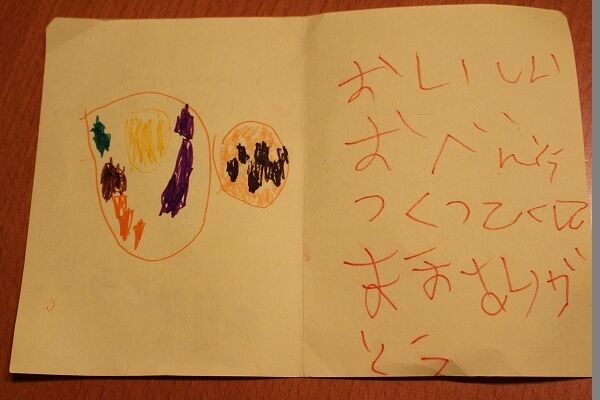 おいしい
おべんとう
つくってくれて
ままありが
とう